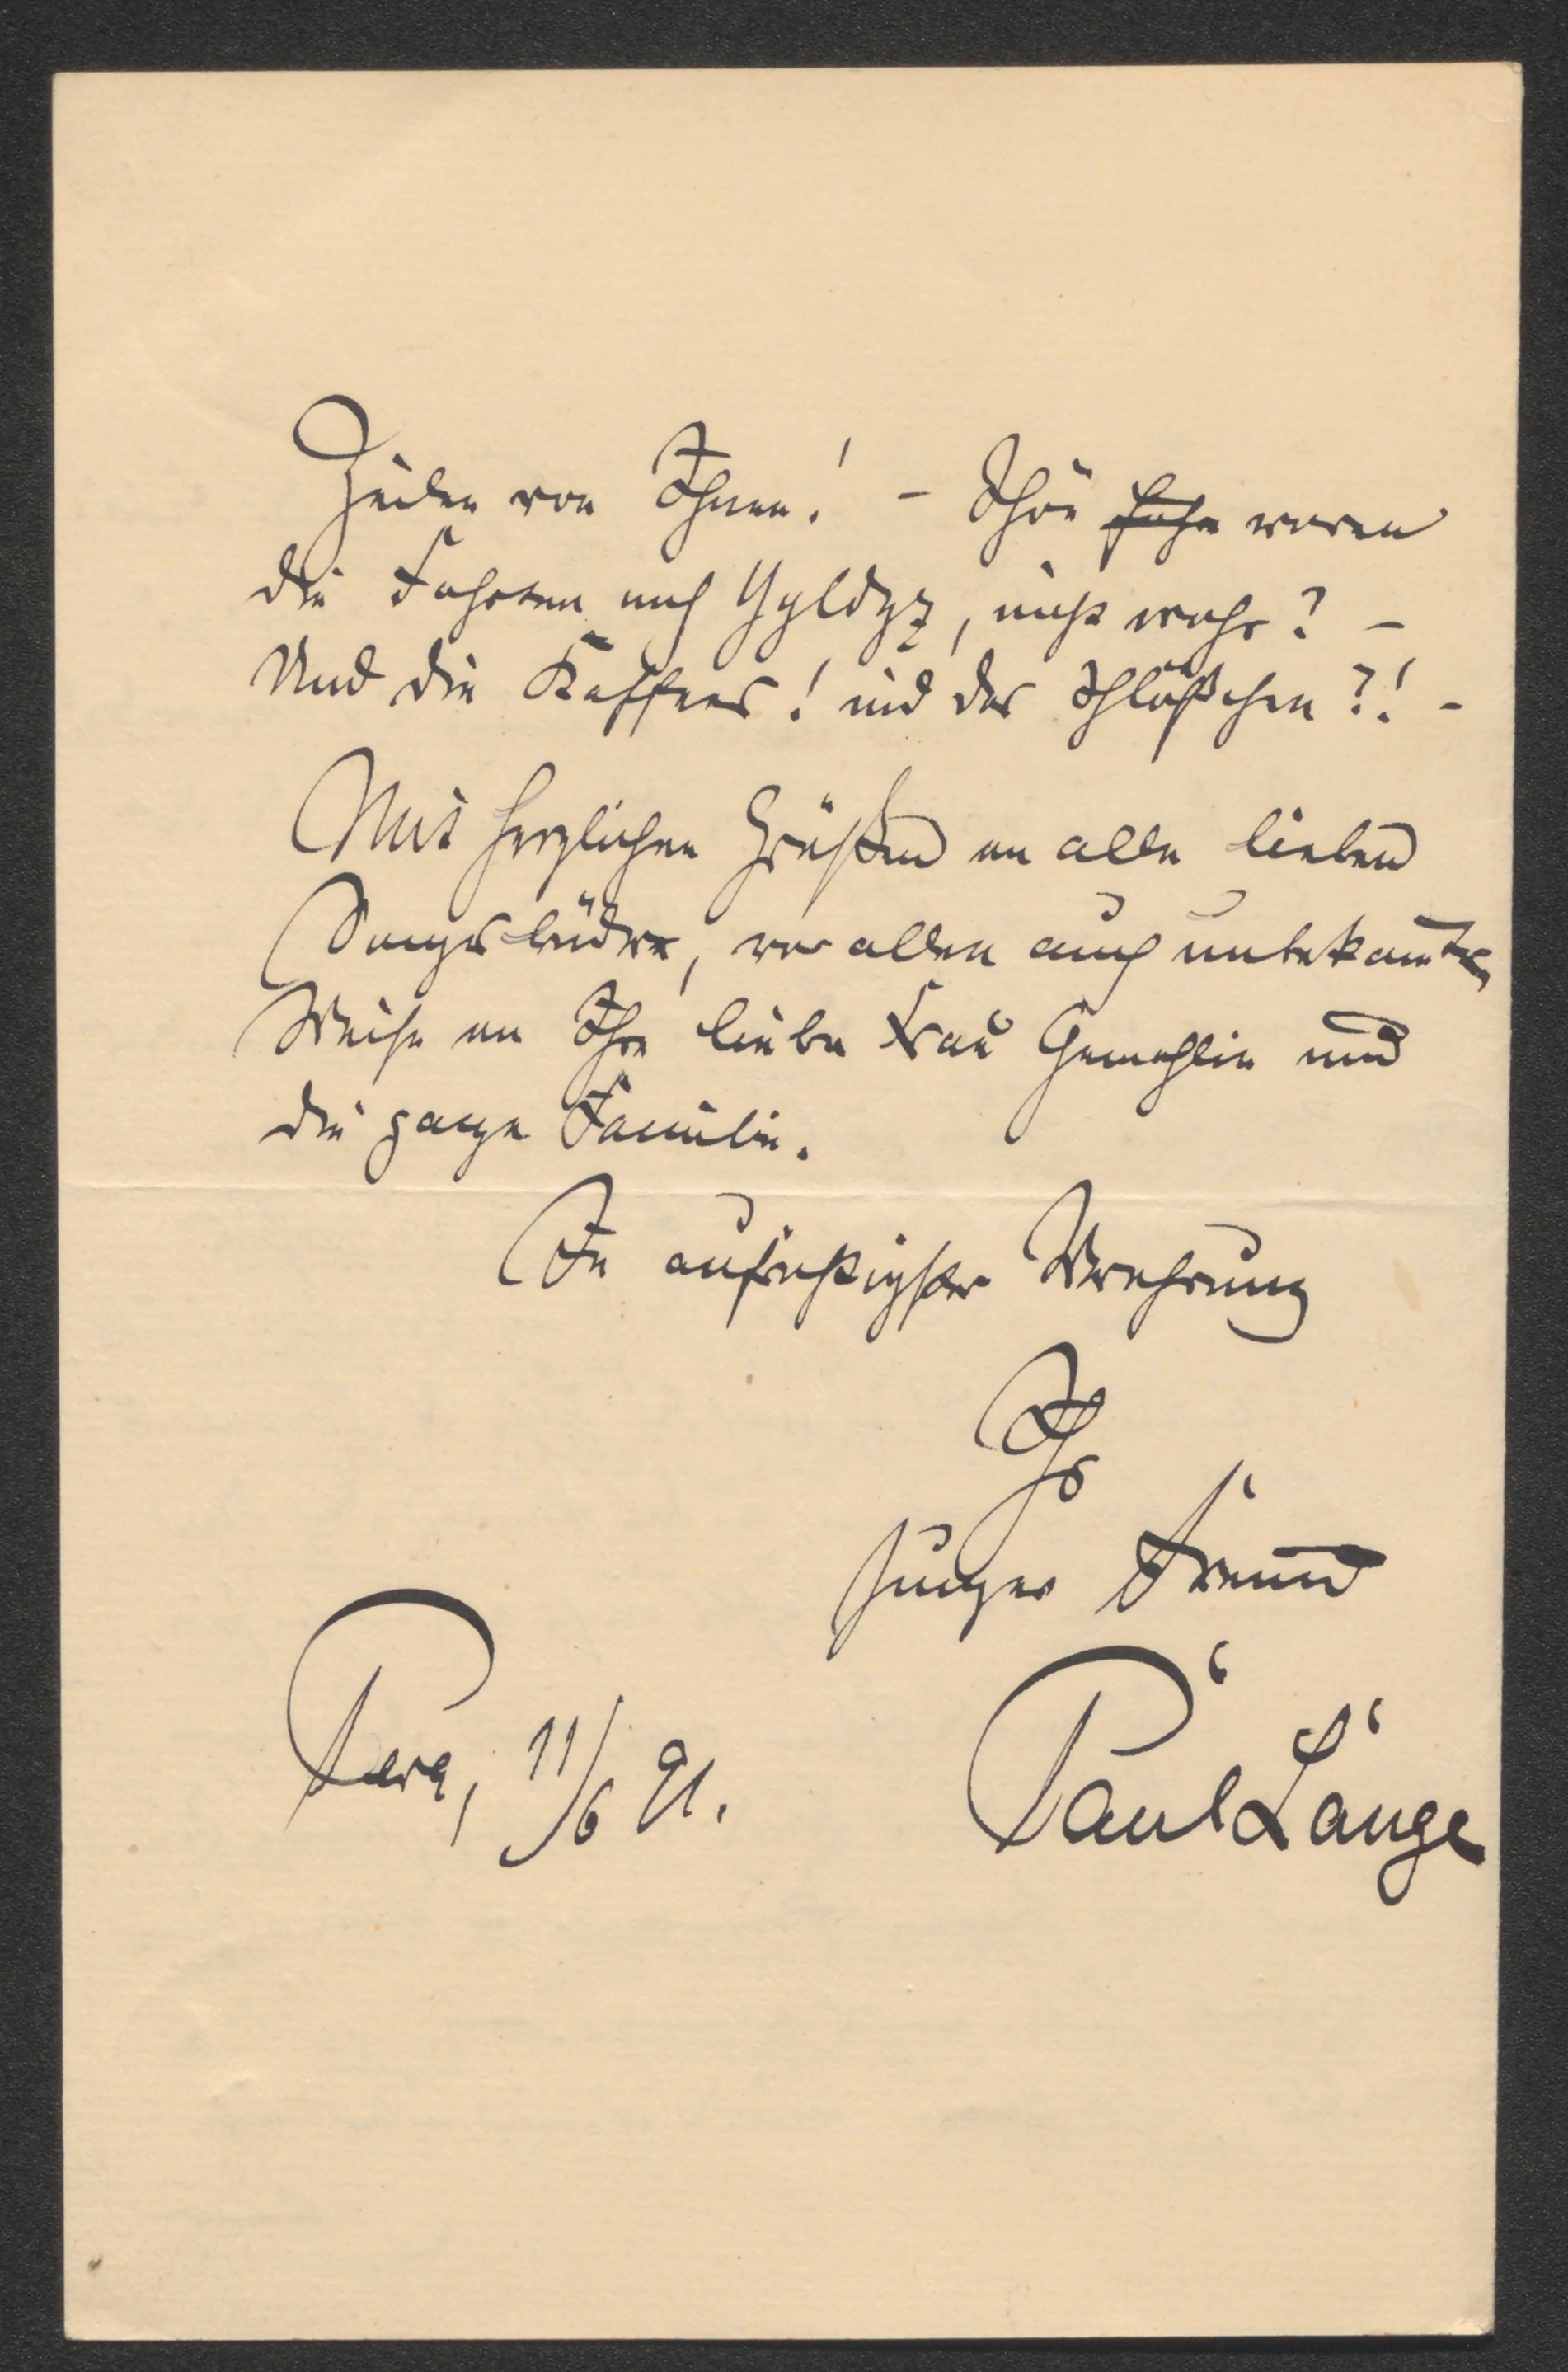 Zeilen von Ihnen! – Schön fuhr waren
die Fahrten nach Yyldyz, nicht wahr? –
Und die Kaffees! und das Schlößchen?! –
Mit herzlichen Grüßen an alle lieben
Sangesbrüder, vor allen auch unbekannter
Weise an Ihre liebe Frau Gemahlin und
die ganze Familie.
In aufrichtigster Verehrung
Ihr
junger Freund
Paul Lange
Pera, 11/6 91.